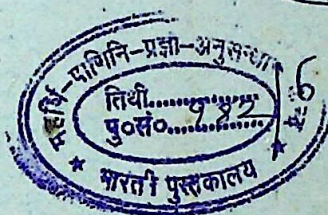 महर्षि-पाणिनि-प्रज्ञा-अनुसन्धा
तिथी..............
पु०सं०....९४२....
★ भारती पुस्तकालय ★